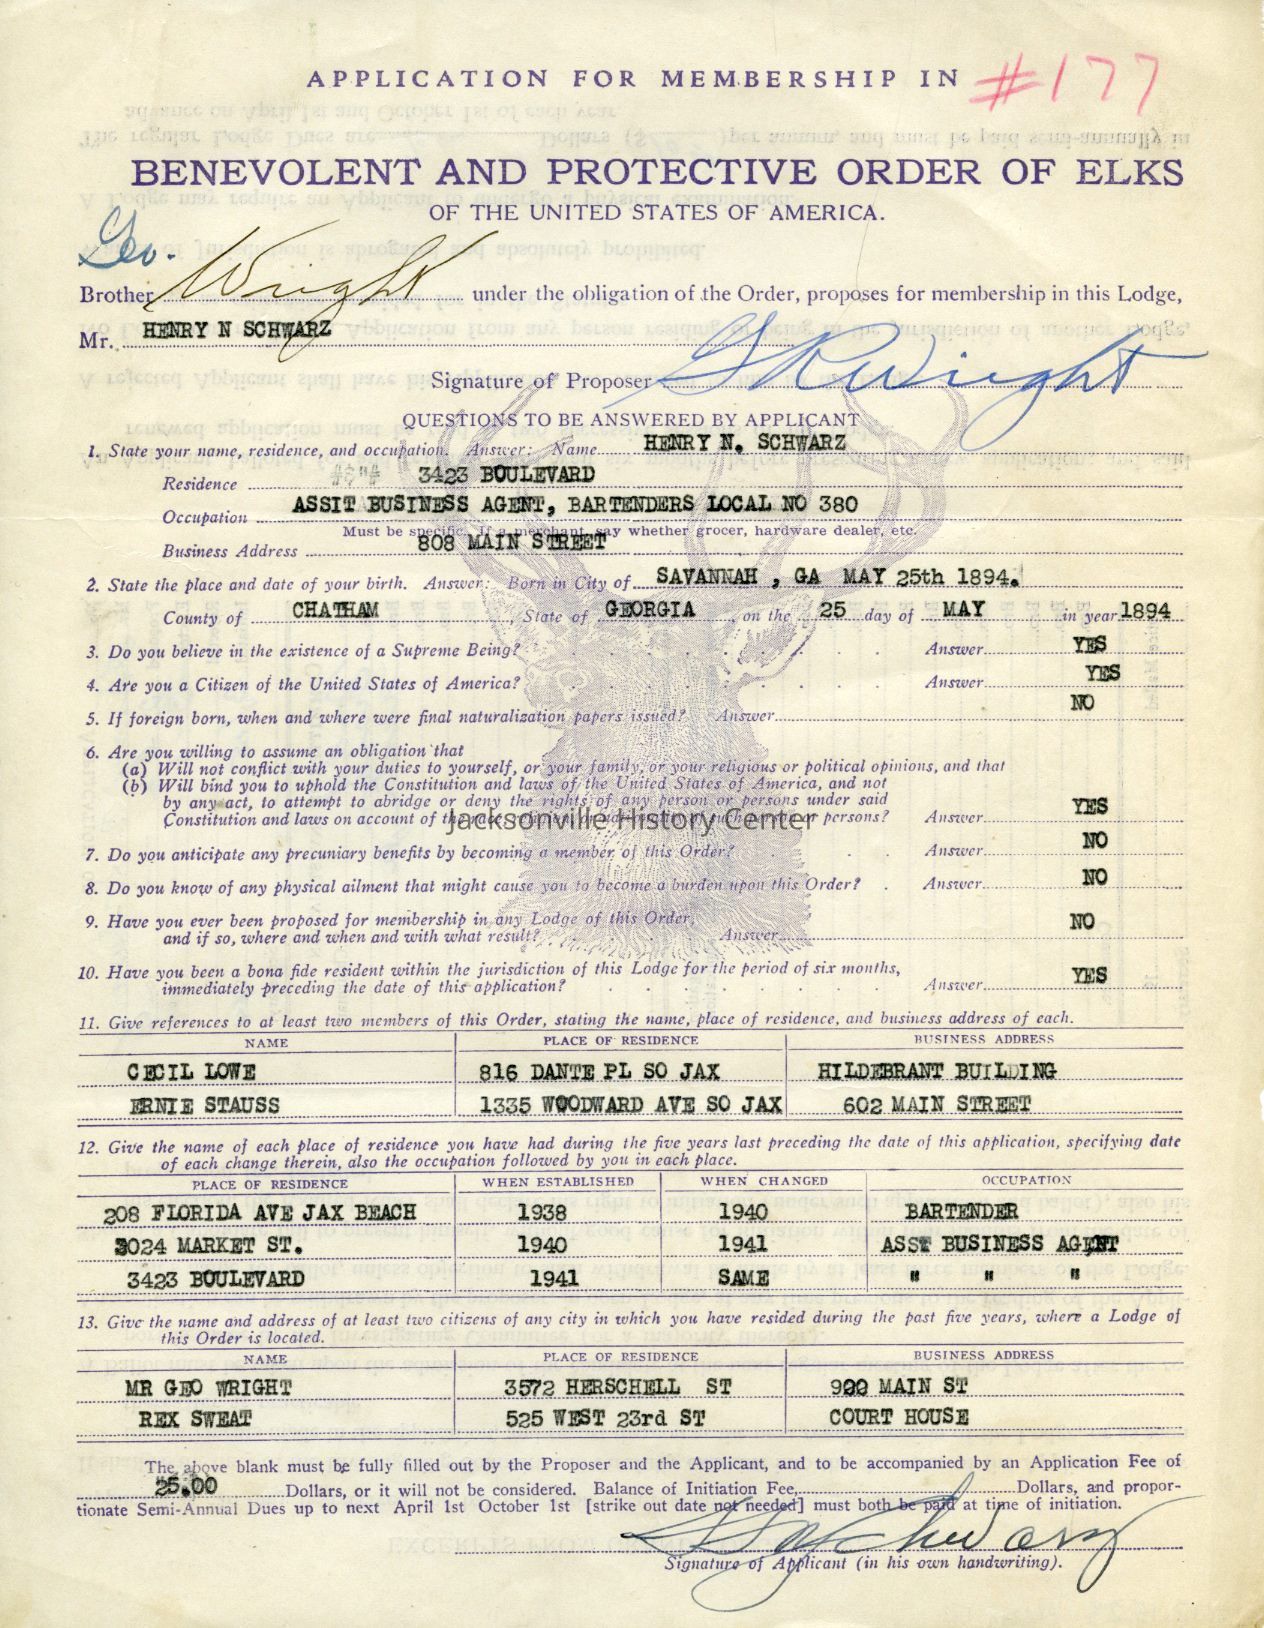 APPLICATION FOR MEMBERSHIP IN #177
BENEVOLENT AND PROTECTIVE ORDER OF ELKS
OF THE UNITED STATES OF AMERICA.
Geo.
Brother Wright under the obligation of the Order, proposes for membership in this Lodge,
Mr. HENRY N SCHWARZ
Signature of Proposer G R Wright
QUESTIONS TO BE ANSWERED BY APPLICANT
1. State your name, residence, and occupation. Answer: Name HENRY N. SCHWARZ
Residence 3423 BOULEVARD
Occupation ASSIT BUSINESS AGENT, BARTENDERS LOCAL NO 380
Must be specific. If a merchant, say whether grocer, hardware dealer, etc.
Business Address 808 MAIN STREET
2. State the place and date of your birth. Answer: Born in City of SAVANNAH , GA MAY 25th 1894.
County of CHATHAM, State of GEORGIA, on the 25 day of MAY in year 1894
3. Do you believe in the existence of a Supreme Being? Answer YES
4. Are you a Citizen of the United States of America? Answer YES
5. If foreign born, when and where were final naturalization papers issued? Answer NO
6. Are you willing to assume an obligation that
(a) Will not conflict with your duties to yourself, or your family, or your religious or political opinions, and that
(b) Will bind you to uphold the Constitution and laws of the United States of America, and not
by any act, to attempt to abridge or deny the rights of any person or persons under said
Constitution and laws on account of the race, religion, or nationality of such person or persons? Answer YES
Jacksonville History Center
7. Do you anticipate any precuniary benefits by becoming a member of this Order? Answer NO
8. Do you know of any physical ailment that might cause you to become a burden upon this Order? Answer NO
9. Have you ever been proposed for membership in any Lodge of this Order,
and if so, where and when and with what result? Answer NO
10. Have you been a bona fide resident within the jurisdiction of this Lodge for the period of six months,
immediately preceding the date of this application? Answer YES
11. Give references to at least two members of this Order, stating the name, place of residence, and business address of each.
NAME PLACE OF RESIDENCE BUSINESS ADDRESS
CECIL LOWE 816 DANTE PL SO JAX HILDEBRANT BUILDING
ERNIE STAUSS 1335 WOODWARD AVE SO JAX 602 MAIN STREET
12. Give the name of each place of residence you have had during the five years last preceding the date of this application, specifying date
of each change therein, also the occupation followed by you in each place.
PLACE OF RESIDENCE WHEN ESTABLISHED WHEN CHANGED OCCUPATION
208 FLORIDA AVE JAX BEACH 1938 1940 BARTENDER
3024 MARKET ST. 1940 1941 ASST BUSINESS AGENT
3423 BOULEVARD 1941 SAME " " "
13. Give the name and address of at least two citizens of any city in which you have resided during the past five years, where a Lodge of
this Order is located.
NAME PLACE OF RESIDENCE BUSINESS ADDRESS
MR GEO WRIGHT 3572 HERSCHELL ST 900 MAIN ST
REX SWEAT 525 WEST 23rd ST COURT HOUSE
The above blank must be fully filled out by the Proposer and the Applicant, and to be accompanied by an Application Fee of
25.00 Dollars, or it will not be considered. Balance of Initiation Fee, Dollars, and propor-
tionate Semi-Annual Dues up to next April 1st October 1st [strike out date not needed] must both be paid at time of initiation.
Signature of Applicant (in his own handwriting).